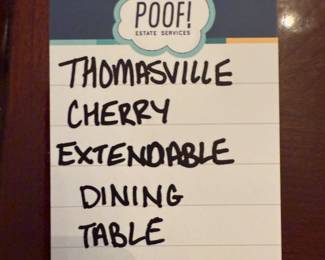 POOF!
ESTATE SERVICES
THOMASVILLE
CHERRY
EXTENDABLE
DINING
TABLE